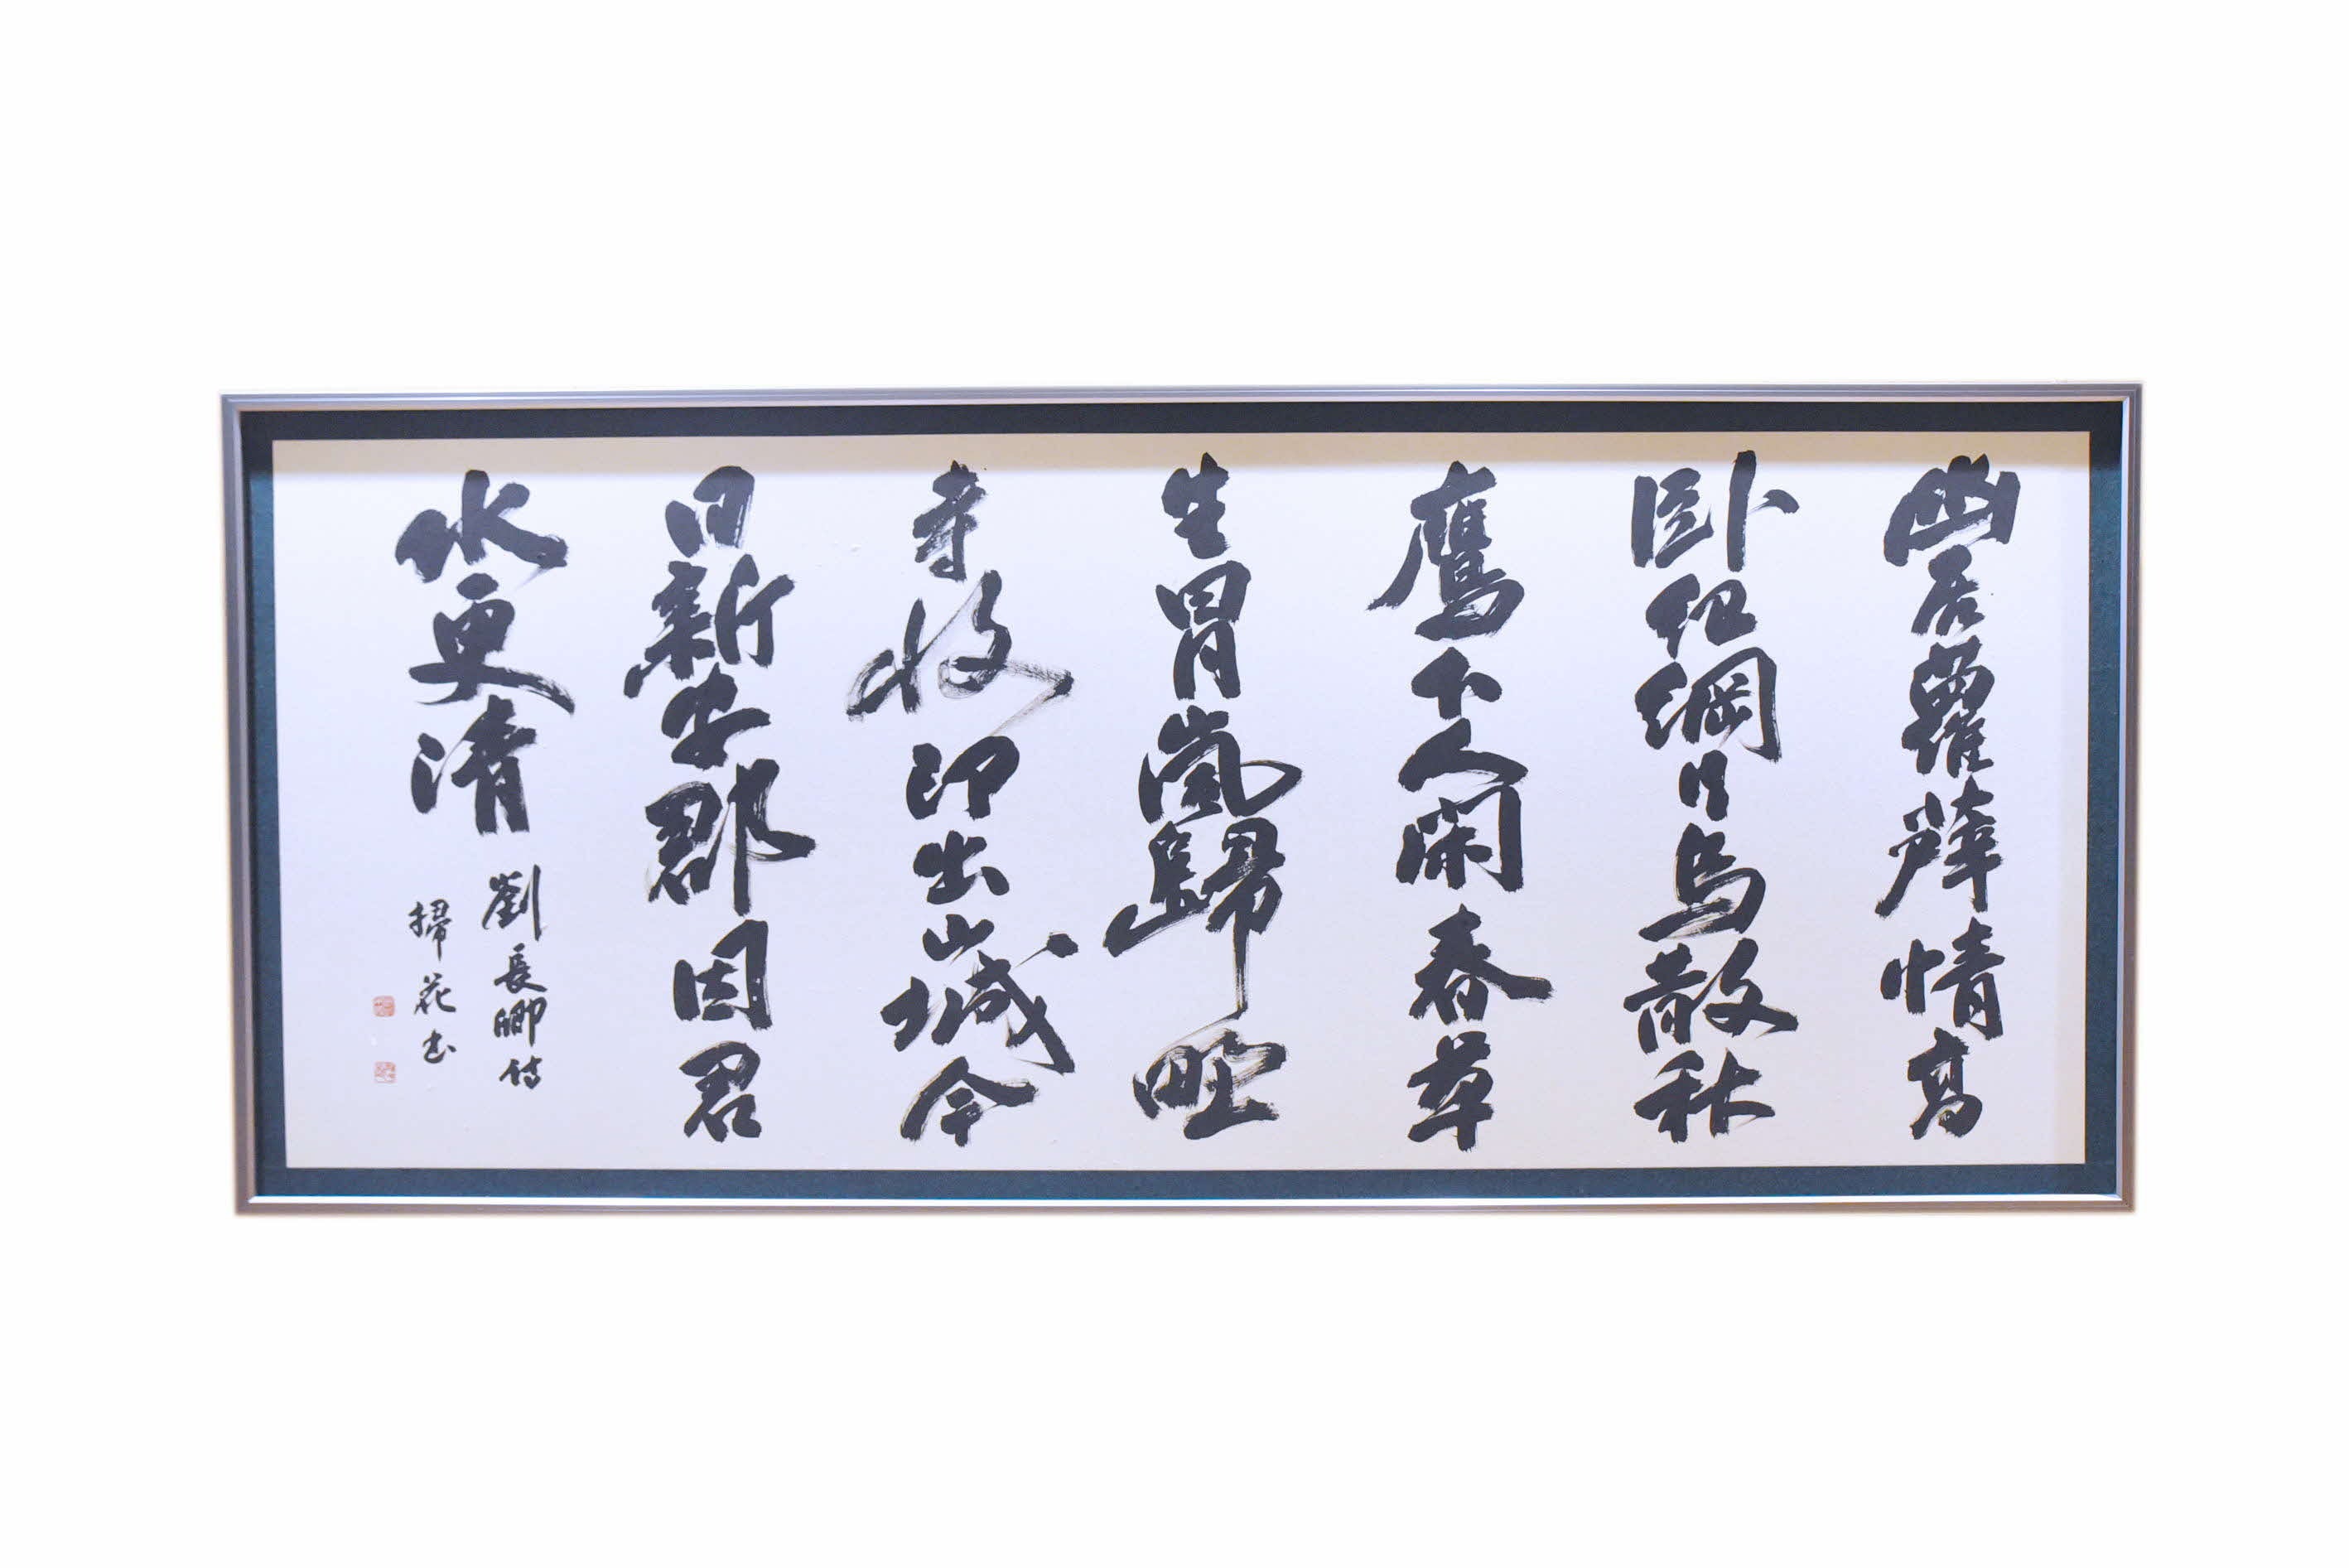 幽居蘿薜情高
臥紀綱行鳥散秋
鷹下人閑春草
生冒嵐歸野
寺收印出山城今
日新安郡因君
水更清
劉長卿詩
掃花書